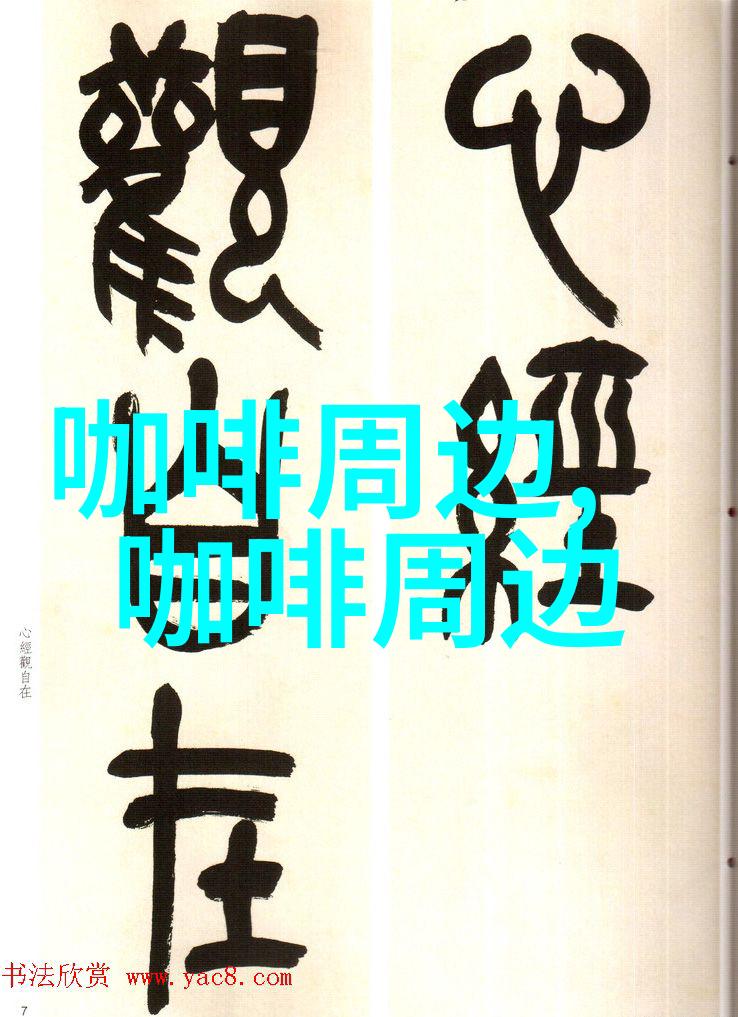 心經
觀自在
咖啡周边,
咖啡周边
心經觀自在
书法欣赏 www.yac8.com
7